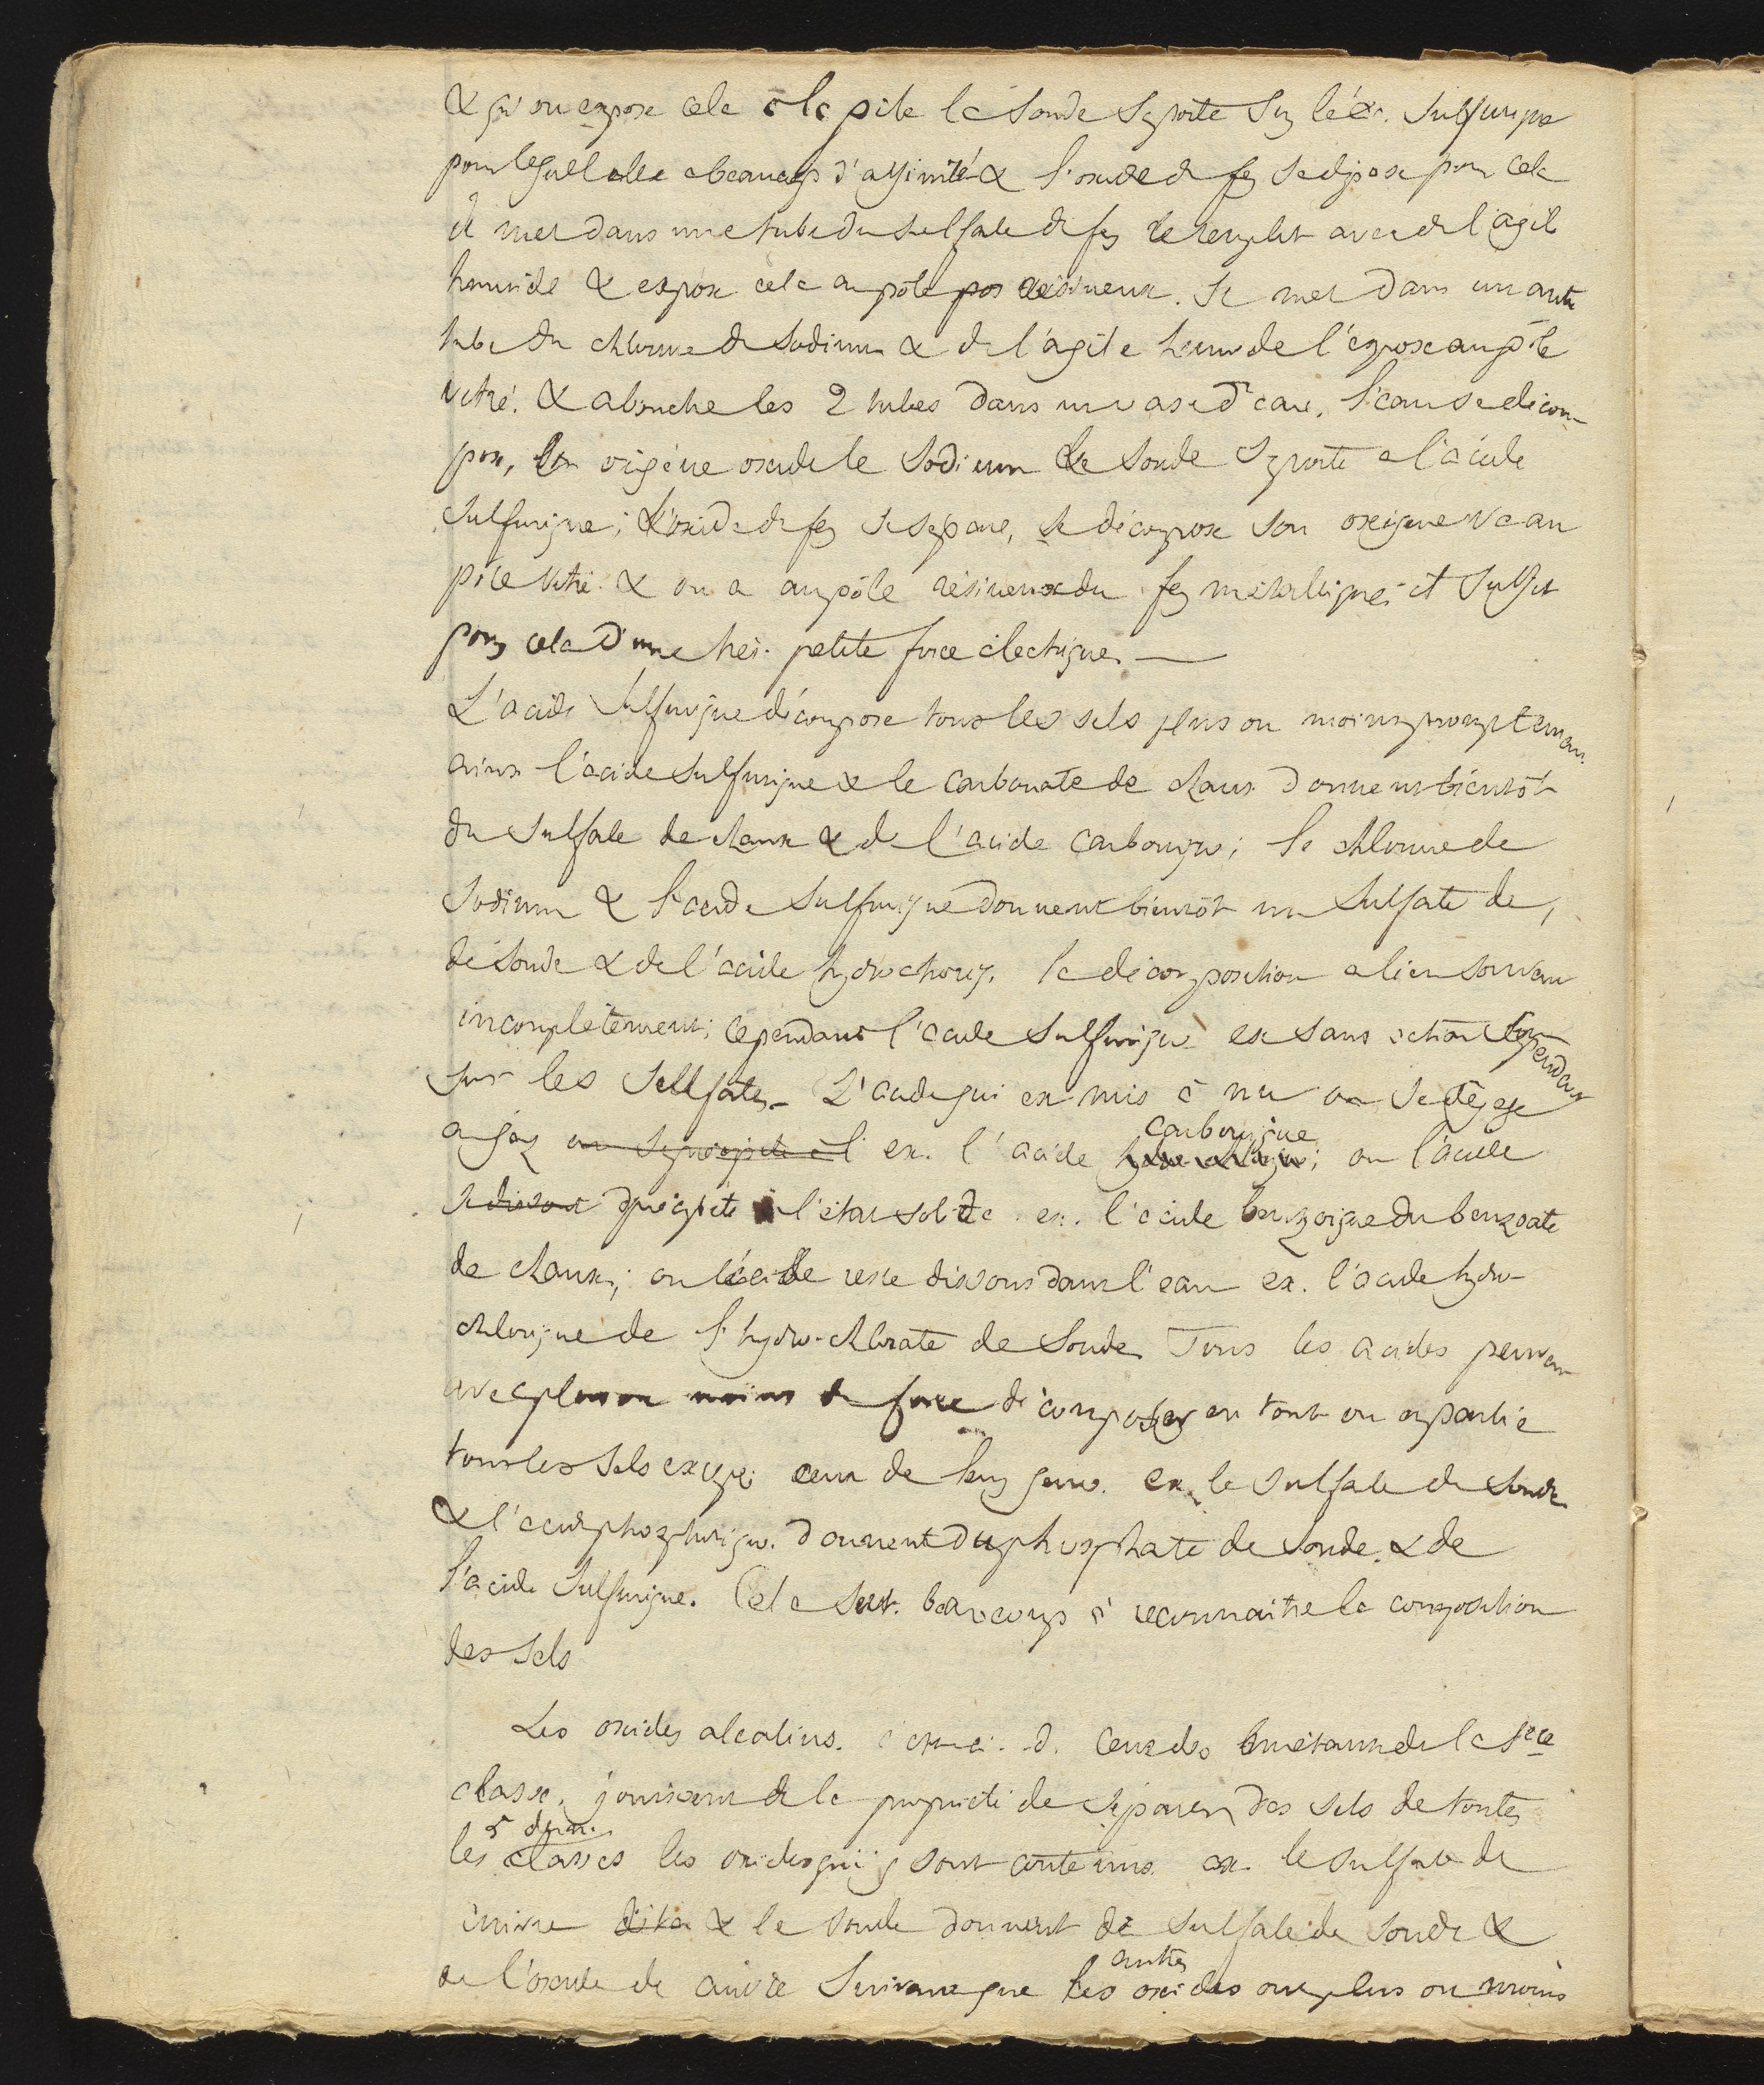 & qu'on expose cela à la pile la soude se porte sur l'ac. sulfurique
pour lequel elle a beaucoup d'affinité & l'oxide de fer se dépose pour cela
il met dans une tube du sulfate de fer le remplit avec de l'agile
humide & expose cela au pôle pos résineux. Il met dans un autre
tube du chlorure de sodium & de l'agile humide l'expose au pôle
vitré. & abouche les 2 tubes dans un vase d'eau. l'eau se décom-
pose, son oxigène oxide le sodium la soude se porte à l'acide
sulfurique; L'oxide de fer se sépare, se décompose son oxigène va au
pôle vitré & on a au pôle résineux du fer métallique et suffit
pour cela d'une très petite force électrique. —
L'acide sulfurique décompose tous les sels plus ou moins promptement
ainsi l'acide sulfurique & le carbonate de chaux donnent bientôt
du sulfate de chaux & de l'acide carbonique; le chlorure de
sodium & l'acide sulfurique donnent bientôt un sulfate de,
de soude & de l'acide hydrochoriq. la décomposition a lieu souvent
incomplètement; cependant l'acide sulfurique est sans action cependant
sur les sulfates. L'acide qui est mis à nu ou se dégage
en gaz ou se précipite à l ex. l'acide carbonique; ou l'acide
se dissout se précipite à l'état solide ex. l'acide benzoïque du benzoate
de chaux; ou l'acide reste dissous dans l'eau ex. l'acide hydro-
chlorique de l'hydro-chlorate de soude. Tous les acides peuvent
avec plus ou moins de force décomposer en tout ou en partie
tous les sels excepté ceux de leur genre. ex. le sulfate de soude
& l'acide phosphorique donnent du phosphate de soude & de
l'acide sulfurique. Cela sert beaucoup à reconnaître la composition
des sels
Les oxides alcalins. c'est-à-d. ceux des métaux de la 1ere
classe, jouissent de la propriété de séparer des sels de toutes
les 5 dern. classes les oxides qui y sont contenus ex. le sulfate de
cuivre & la soude donnent de sulfate de soude &
de l'oxide de cuivre Suivant que les autres oxides ont plus ou moins